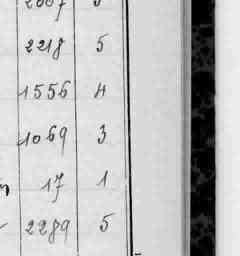 2218 5
1556 4
1069 3
17 1
2289 5